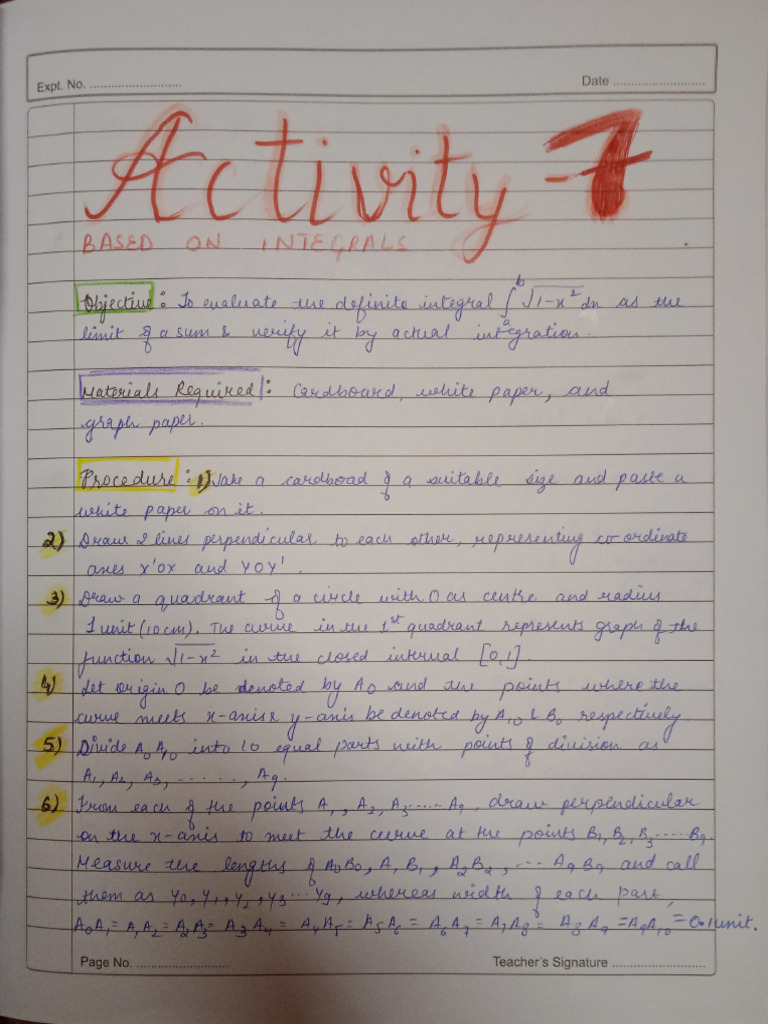 Expt. No. ............................
Date ............................
Activity -7
BASED ON INTEGRALS
Objective : To evaluate the definite integral ∫ₐᵇ √1-x² dx as the
limit of a sum & verify it by actual integration.
Materials Required : Cardboard, white paper, and
graph paper.
Procedure : 1) Take a cardboad of a suitable size and paste a
white paper on it.
2) Draw 2 lines perpendicular to each other, representing co-ordinate
axes X'OX and YOY'.
3) Draw a quadrant of a circle with O as centre and radius
1 unit (10 cm). The curve in the 1st quadrant represents graph of the
function √1-x² in the closed interval [0,1].
4) Let origin O be denoted by A₀ and the points where the
curve meets x-axis & y-axis be denoted by A₁₀ & B₀ respectively.
5) Divide A₀A₁₀ into 10 equal parts with points of division as
A₁, A₂, A₃, ......, A₉.
6) From each of the points A₁, A₂, A₃ ..... A₉, draw perpendicular
on the x-axis to meet the curve at the points B₁, B₂, B₃ ..... B₉.
Measure the lengths of A₀B₀, A₁B₁, A₂B₂, ... A₉B₉ and call
them as y₀, y₁, y₂, y₃ ... y₉, whereas width of each part,
A₀A₁ = A₁A₂ = A₂A₃ = A₃A₄ = A₄A₅ = A₅A₆ = A₆A₇ = A₇A₈ = A₈A₉ = A₉A₁₀ = 0.1 unit.
Page No. ............................
Teacher's Signature ............................